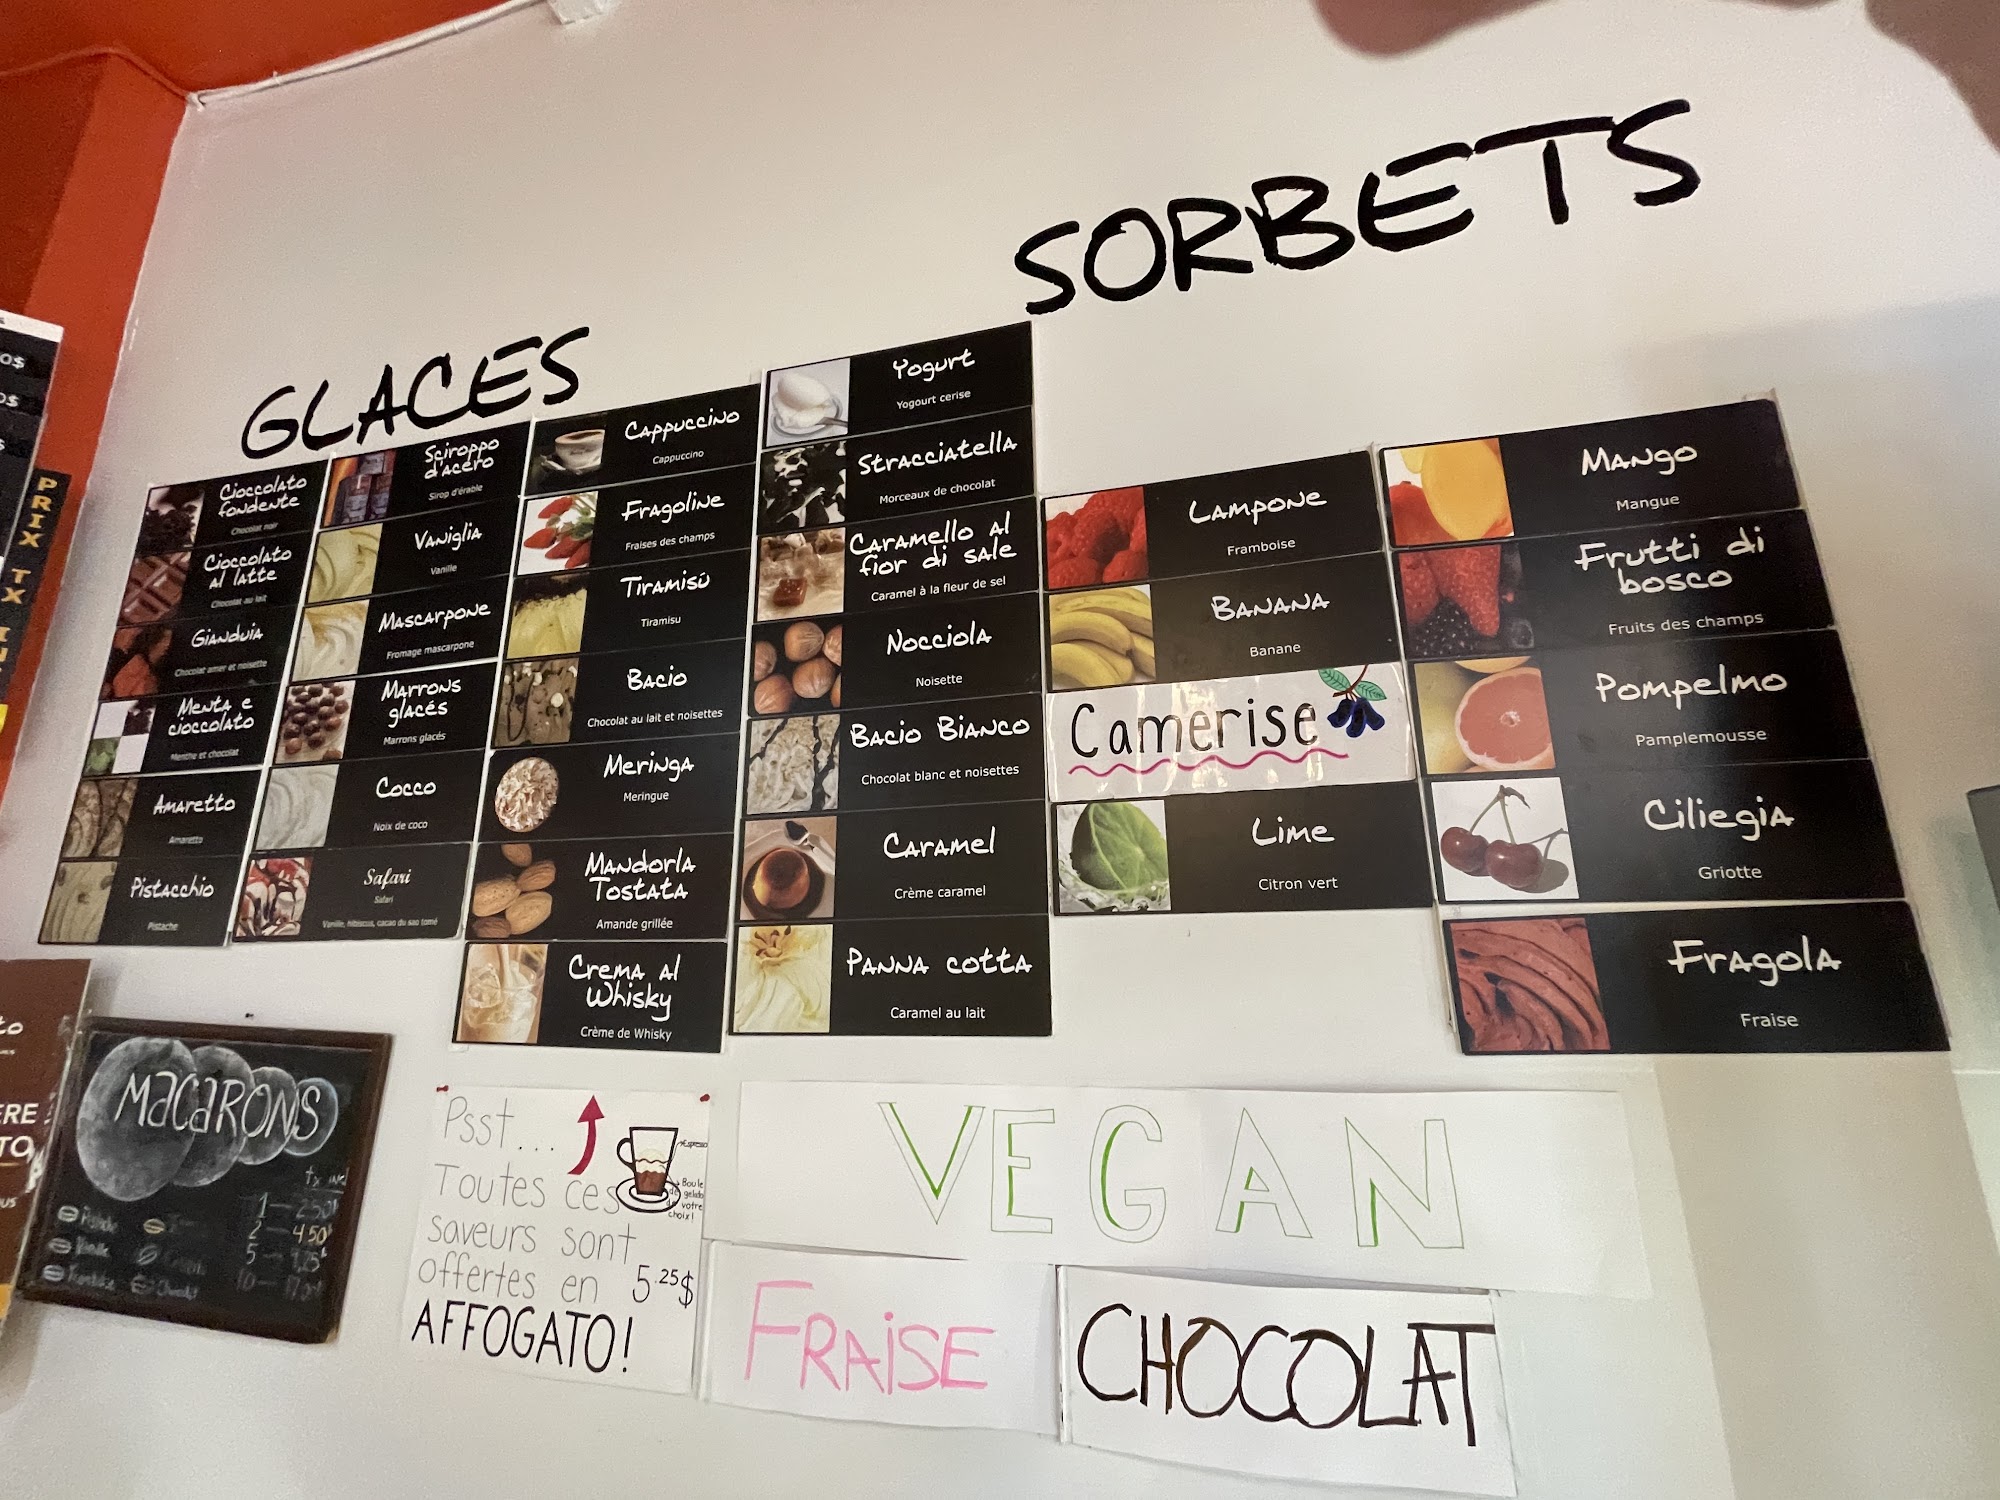 GLACES
Cioccolato
fondente
Chocolat noir
Cioccolato
al latte
Chocolat au lait
Gianduia
Chocolat amer et noisette
Menta e
cioccolato
Menthe et chocolat
Amaretto
Amaretto
Pistacchio
Pistache
Sciroppo
d'acero
Sirop d'érable
Vaniglia
Vanille
Mascarpone
Fromage mascarpone
Marrons
glacés
Marrons glacés
Cocco
Noix de coco
Safari
Safari
Vanille, hibiscus, cacao du sao tomé
Cappuccino
Cappuccino
Fragoline
Fraises des champs
Tiramisú
Tiramisu
Bacio
Chocolat au lait et noisettes
Meringa
Meringue
Mandorla
Tostata
Amande grillée
Crema al
Whisky
Crème de Whisky
Yogurt
Yogourt cerise
Stracciatella
Morceaux de chocolat
Caramello al
fior di sale
Caramel à la fleur de sel
Nocciola
Noisette
Bacio Bianco
Chocolat blanc et noisettes
Caramel
Crème caramel
Panna cotta
Caramel au lait
SORBETS
Lampone
Framboise
Banana
Banane
Camerise
Lime
Citron vert
Mango
Mangue
Frutti di
bosco
Fruits des champs
Pompelmo
Pamplemousse
Ciliegia
Griotte
Fragola
Fraise
PRIX TX
MACARONS
1 — 2.50
2 — 4.50
5 —
10 —
Psst...
Toutes ces
saveurs sont
offertes en 5.25$
AFFOGATO!
Espresso
Boule
de gelato
de votre
choix!
VEGAN
FRAISE
CHOCOLAT